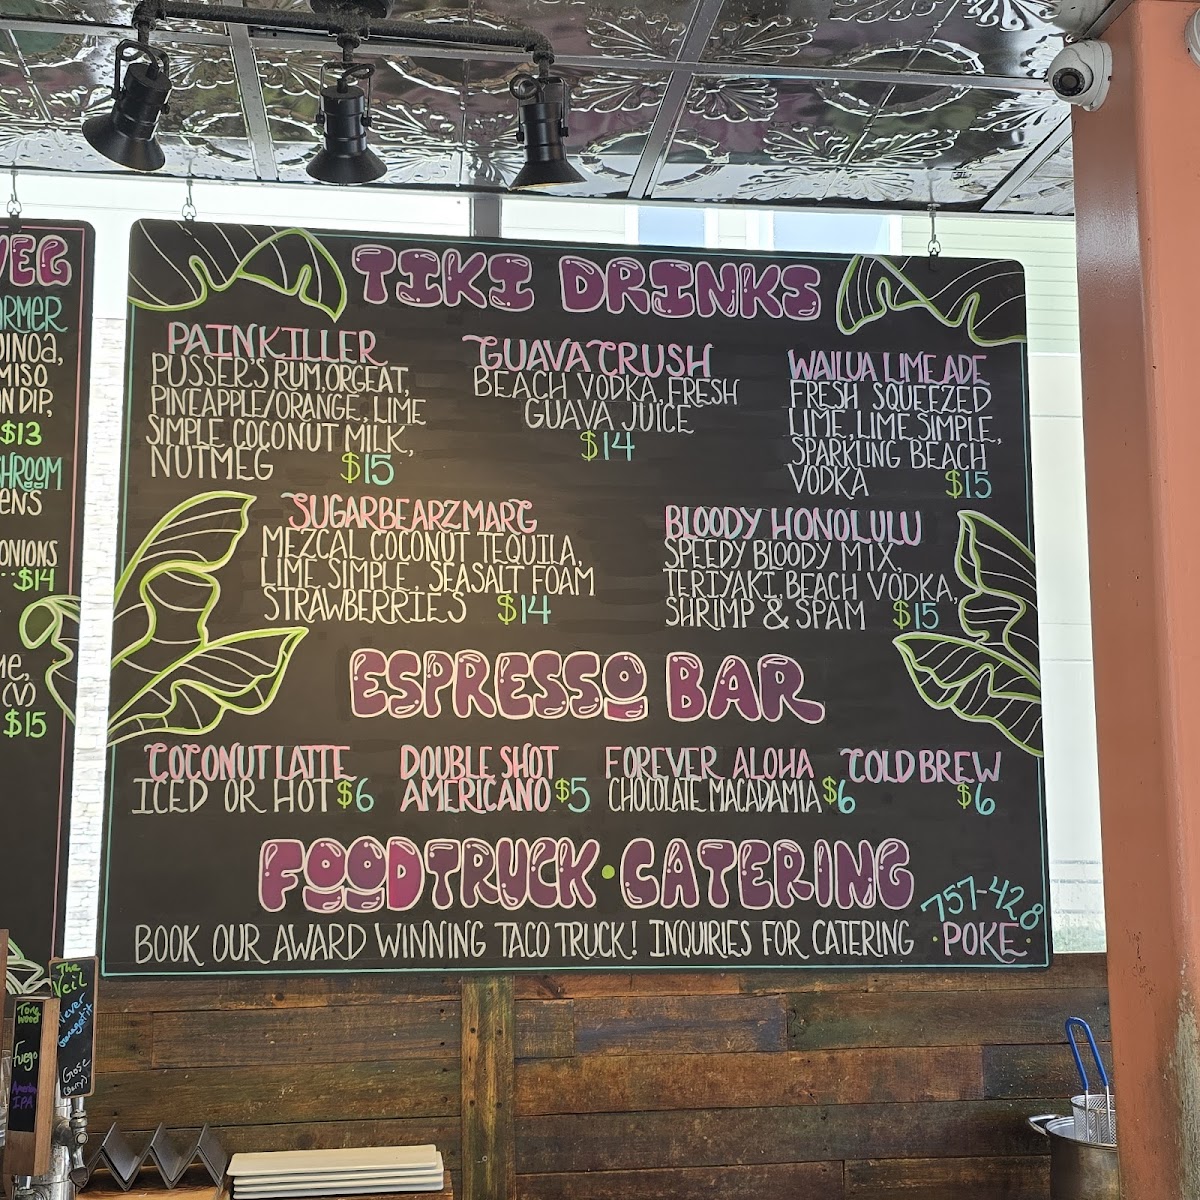 VEG
ARMER
MISO
N DIP,
$13
SHROOM
ONIONS
$14
(V)
$15
TIKI DRINKS
PAINKILLER
PUSSER'S RUM, ORGEAT,
PINEAPPLE/ORANGE, LIME
SIMPLE, COCONUT MILK,
NUTMEG $15
GUAVA CRUSH
BEACH VODKA, FRESH
GUAVA JUICE
$14
WAILUA LIMEADE
FRESH SQUEEZED
LIME, LIME SIMPLE,
SPARKLING BEACH
VODKA $15
SUGARBEARZMARG
MEZCAL COCONUT TEQUILA,
LIME, SIMPLE, SEASALT FOAM
STRAWBERRIES $14
BLOODY HONOLULU
SPEEDY BLOODY MIX,
TERIYAKI, BEACH VODKA,
SHRIMP & SPAM $15
ESPRESSO BAR
COCONUT LATTE
ICED OR HOT $6
DOUBLE SHOT
AMERICANO $5
FOREVER ALOHA
CHOCOLATE MACADAMIA $6
COLD BREW
$6
FOODTRUCK · CATERING
BOOK OUR AWARD WINNING TACO TRUCK! INQUIRIES FOR CATERING
757-428
·POKE·
The
Veil
Never
Gose
(Berry)
Fuego
IPA